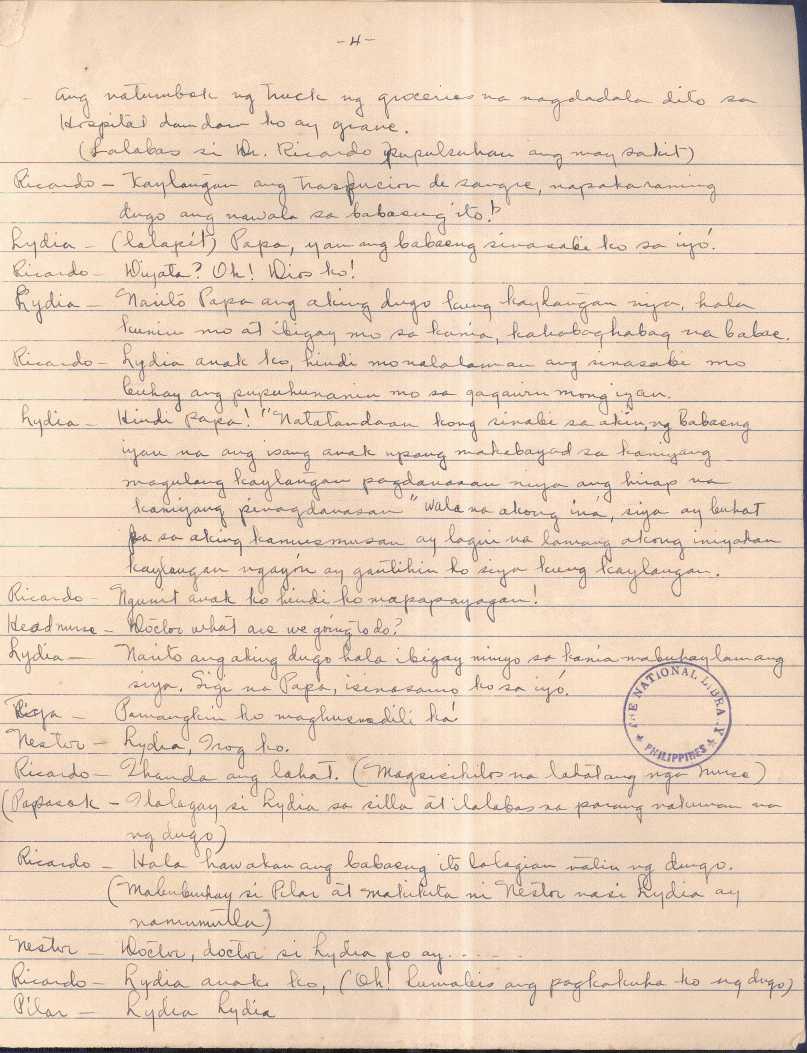 -4-
ang natumbok ng truck ng groceries na nagdadala dito sa
Hospital damdam ko ay grave.
(Lalabas si Dr. Ricardo pupulsuhan ang may sakit)
Ricardo - Kaylangan ang trasfucion de sangre, napakaraming
dugo ang nawala sa babaeng ito!"
Lydia - (lalapit) Papa, yan ang babaeng sinasabi ko sa iyó.
Ricardo - Diyata? Oh! Dios ko!
Lydia - Narito Papa ang aking dugo kung kaylangan niya, hala
kunin mo at ibigay mo sa kania, kahabaghabag na babae.
Ricardo - Lydia anak ko, hindi mo nalalaman ang sinasabi mo
buhay ang pupuhunanin mo sa gagawin mong iyan.
Lydia - Hindi papa! "Natatandaan kong sinabi sa akin, ng Babaeng
iyan na ang isang anak upang makabayad sa kaniyang
magulang kaylangan pagdanasan niya ang hirap na
kaniyang pinagdanasan" wala na akong iná, siya ay buhat
pa sa aking kamusmusan ay lagui na lamang akong iniyakan
kaylangan ngayón ay gantihin ko siya kung kaylangan.
Ricardo - Ngunit anak ko hindi ko mapapayagan!
Headnurse - Doctor what are we going to do?
Lydia - Narito ang aking dugo hala ibigay ninyo sa kania mabuhay lamang
siya. Sigi na Papa, isinasamo ko sa iyó.
- Pamangkin ko maghusnadili ká
Nestor - Lydia, Irog ko.
Ricardo - Ihanda ang lahat. (Magsisikilos na lahat ang mga nurse)
(Papasok - Ilalagay si Lydia sa silla at ilalabas na parang nakunan na
ng dugo)
Ricardo - Hala hawakan ang babaeng ito lalagian natin ng dugo.
(Mabubuhay si Pilar at makikita ni Nestor na si Lydia ay
namumutla)
Nestor - Doctor, doctor si Lydia po ay......
Ricardo - Lydia anak ko, (Oh! Lumabis ang pagkakuha ko ng dugo)
Pilar - Lydia Lydia
THE NATIONAL LIBRARY
PHILIPPINES